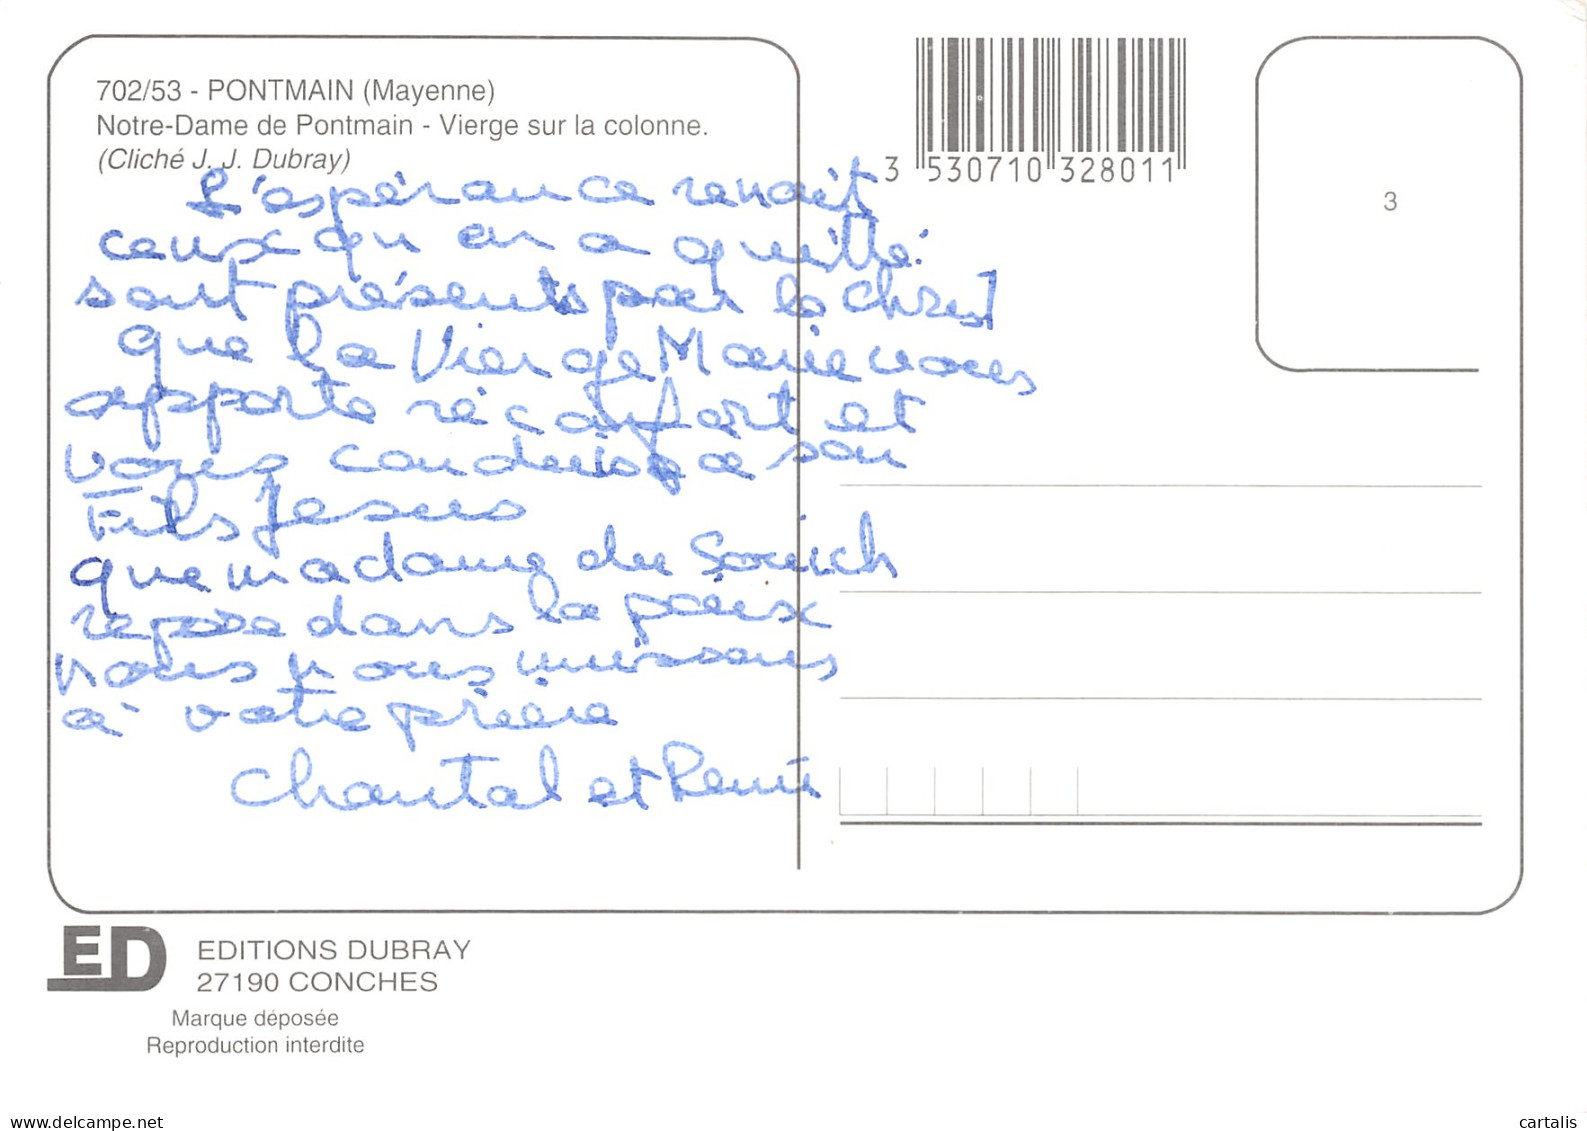 702/53 - PONTMAIN (Mayenne)
Notre-Dame de Pontmain - Vierge sur la colonne.
(Cliché J. J. Dubray)
L'espérance renait
ceux qu on a quitté
sont présents par le Christ
que la Vierge Marie vous
apporte réconfort et
vous conduise a son
Fils Jesus
que madame du
repose dans la paix
nous nous unissons
à votre prière
Chantal et René
3 530710 328011
3
ED
EDITIONS DUBRAY
27190 CONCHES
Marque déposée
Reproduction interdite
www.delcampe.net
cartalis